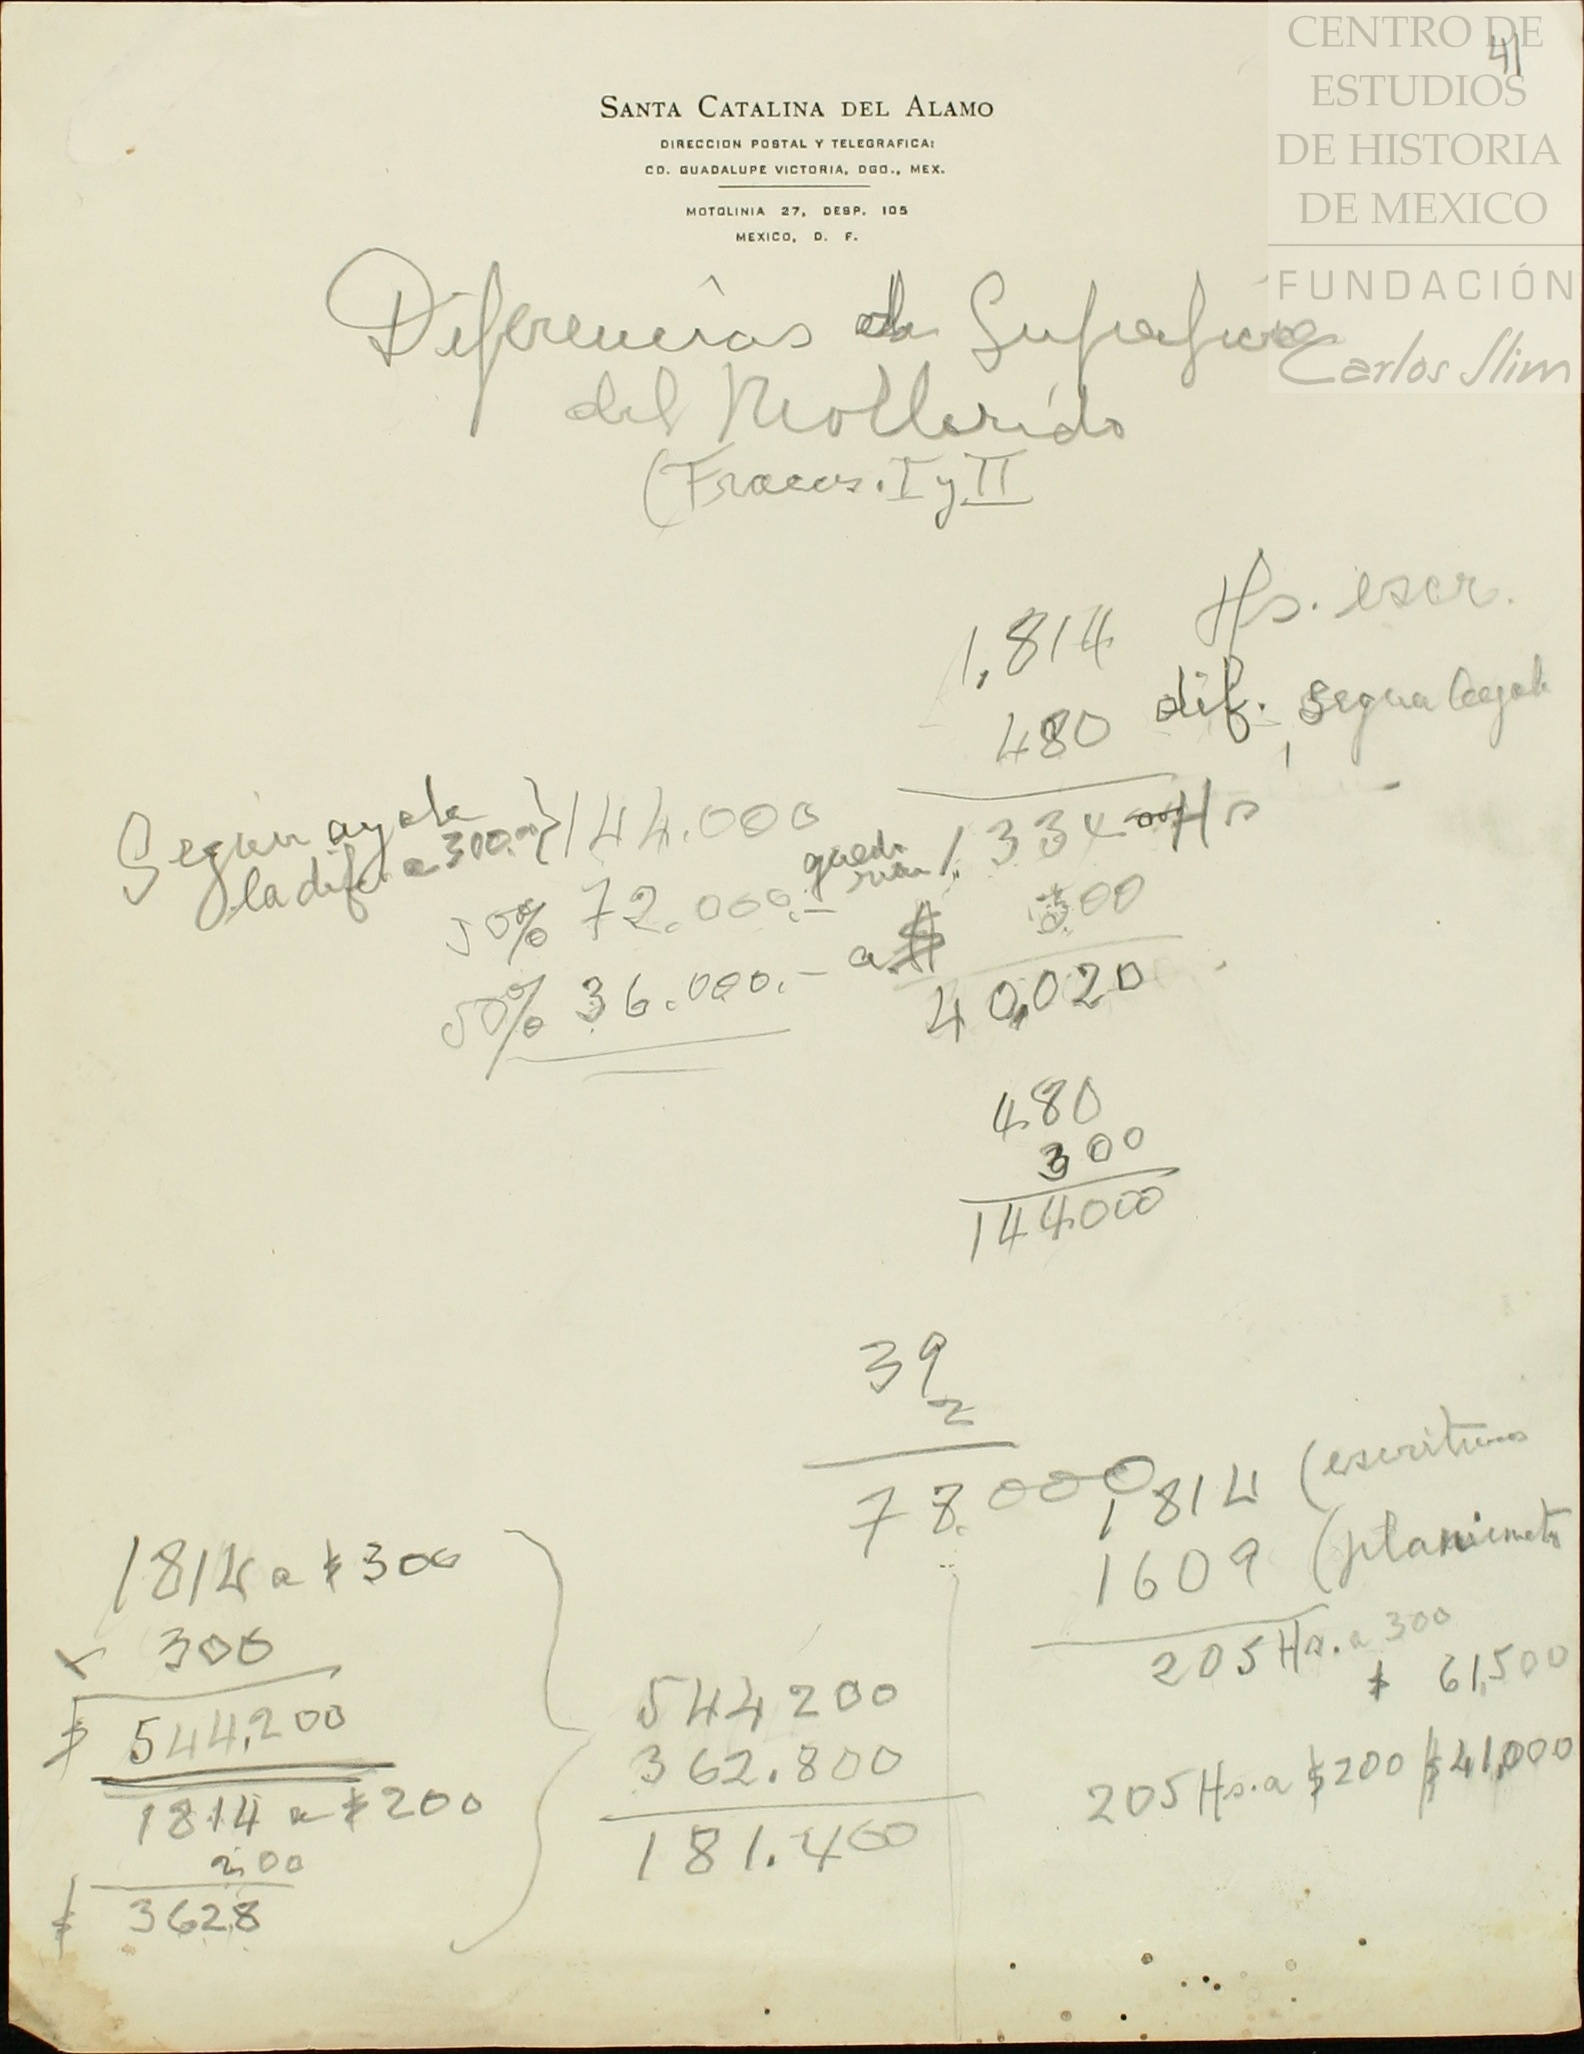 CENTRO DE
ESTUDIOS
DE HISTORIA
DE MEXICO
FUNDACIÓN
Carlos Slim
41
SANTA CATALINA DEL ALAMO
DIRECCION POSTAL Y TELEGRAFICA:
CD. GUADALUPE VICTORIA, DGO., MEX.
MOTOLINIA 27, DESP. 105
MEXICO, D. F.
Diferencias de Superficie
del
(Fraccs. I y II
1,814 Hs. escr.
480 dif. segun
1.334 Hs
Según ayala
la dif. a 300.00 } 144.000
50% 72.000.-
50% 36.000.-
a $ 00
40,020
480
300
144.000
39
2
78.000
1814 (escrituras
1609 (planimetr
205 Hs. a 300
$ 61,500
205 Hs. a $200 $41,000
1814 a $300
x 300
$ 544,200
1814 a $200
200
$ 3628
544200
362.800
181.400